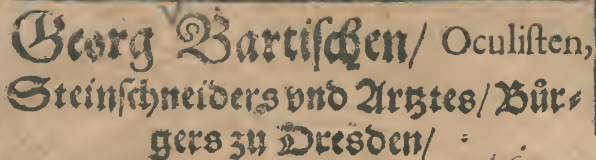 Georg Bartiſchen/ Oculiſten,
Steinſchneiders vnd Artztes/ Buͤr⸗
gers zu Dresden/